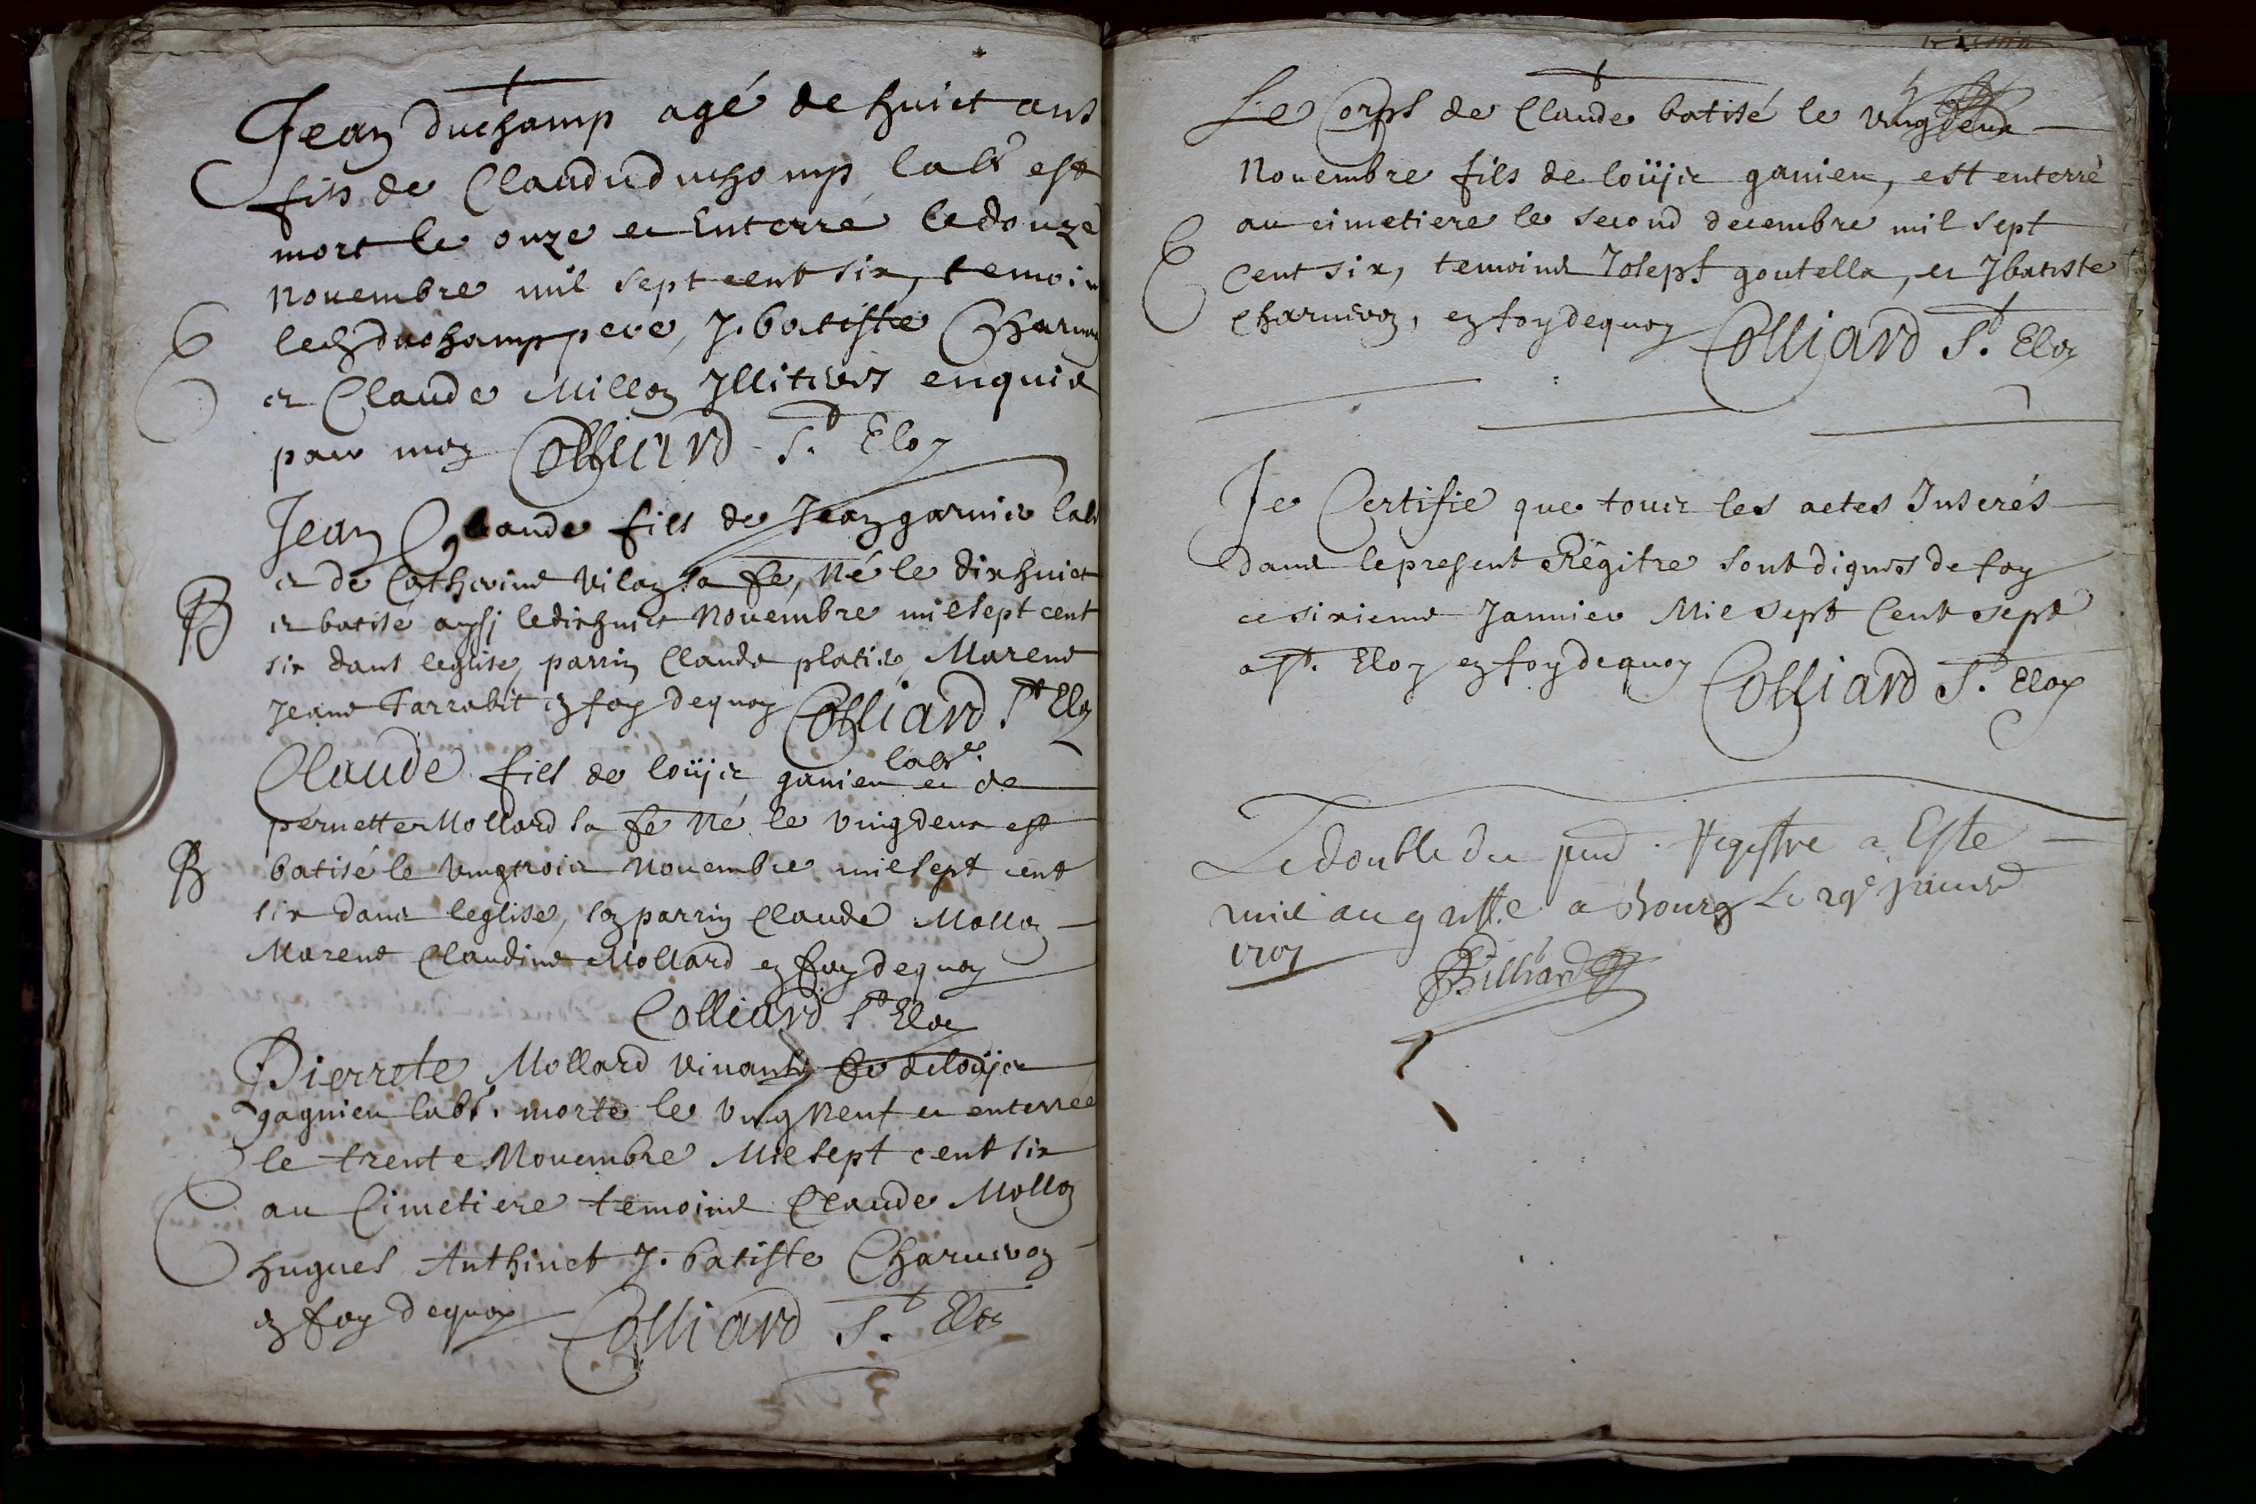 Jean duchamp agé de huict ans
fils de Claude duchamp labr est
mort le onze et Enterré le douze
novembre mil sept cent six, temoin
led duchamp pere, J. batiste Charnivoz
et Claude Milloz Jllitirés enquis
par moy Colliard St. Eloy
Jean Claude fils de Jean garnier labr
et de Catherine vilaz sa fe, Né le dixhuict
et batisé aussj le dixhuict Novembre mil sept cent
six dans leglise, parrin Claude platier, Marene
Jeane Tarrabit en foy dequoy Colliard St Eloy
Claude fils de loüjs ganieu labr et de
pernette Mollard sa fe Né le vingdeux est
batisé le vingtrois novembre mil sept cent
six dans leglise, son parrin Claude Molloz
Marene Claudine Mollard en foy dequoy
Colliard St Eloy
Pierrete Mollard vivante fe de loüjs
gagnieu labr. morte le vingneuf et enterrée
le trente Novembre Mil sept cent six
au Cimetiere temoins Claude Molloz
hugues Anthinet J. batiste Charnivoz
en foy dequoy Colliard St. Eloy
Le Corps de Claude batisé le vingdeux
Novembre fils de loüjs ganieu, est enterré
au cimetiere le second decembre mil sept
Cent six, temoins Joseph goutella, et Jbatiste
Charnivoz, en foy dequoy Colliard St. Eloy
Je Certifie que touts les actes Inserés
dans le present Régitre sont dignes de foy
ce sixieme Janvier Mil sept Cent sept
a St. Eloy en foy dequoy Colliard St. Eloy
Le double du pnt Registre a Este
mis au greffe a Bourg Le 29e janvier
1707
Billiard